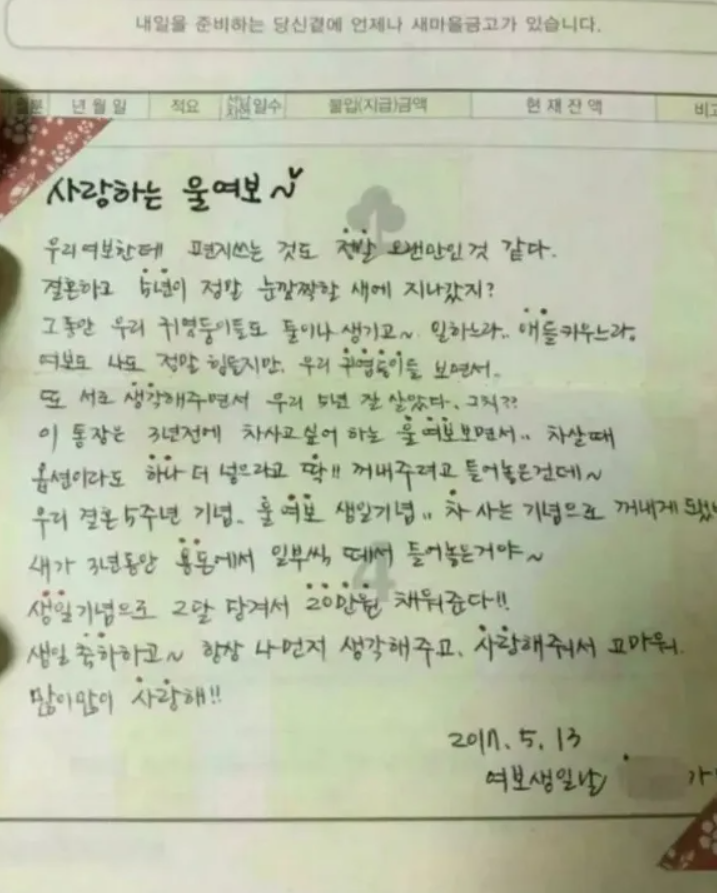 내일을 준비하는 당신곁에 언제나 새마을금고가 있습니다.
년월일 적요 일수 불입(지급)금액 현재잔액 비고
사랑하는 울여보~
우리여보한테 편지쓰는 것도 정말 오랜만인것 같다.
결혼하고 5년이 정말 눈깜짝할 새에 지나갔지?
그동안 우리 귀염둥이들도 둘이나 생기고~ 일하느라.. 애들키우느라,
여보도 나도 정말 힘들지만, 우리 귀염둥이들 보면서..
또 서로 생각해주면서 우리 5년 잘 살았다. 그치??
이 통장은 3년전에 차사고싶어 하는 울여보보면서.. 차살때
옵션이라도 하나 더 넣으라고 딱!! 꺼내주려고 들어놓은건데~
우리 결혼 5주년 기념.. 울여보 생일기념.. 차 사는 기념으로 꺼내게 됐
내가 3년동안 용돈에서 일부씩 떼서 들어놓은거야~
생일기념으로 2달 당겨서 20만원 채워준다!!
생일 축하하고~ 항상 나먼저 생각해주고, 사랑해줘서 고마워.
많이많이 사랑해!!
2017. 5. 13
여보생일날 가